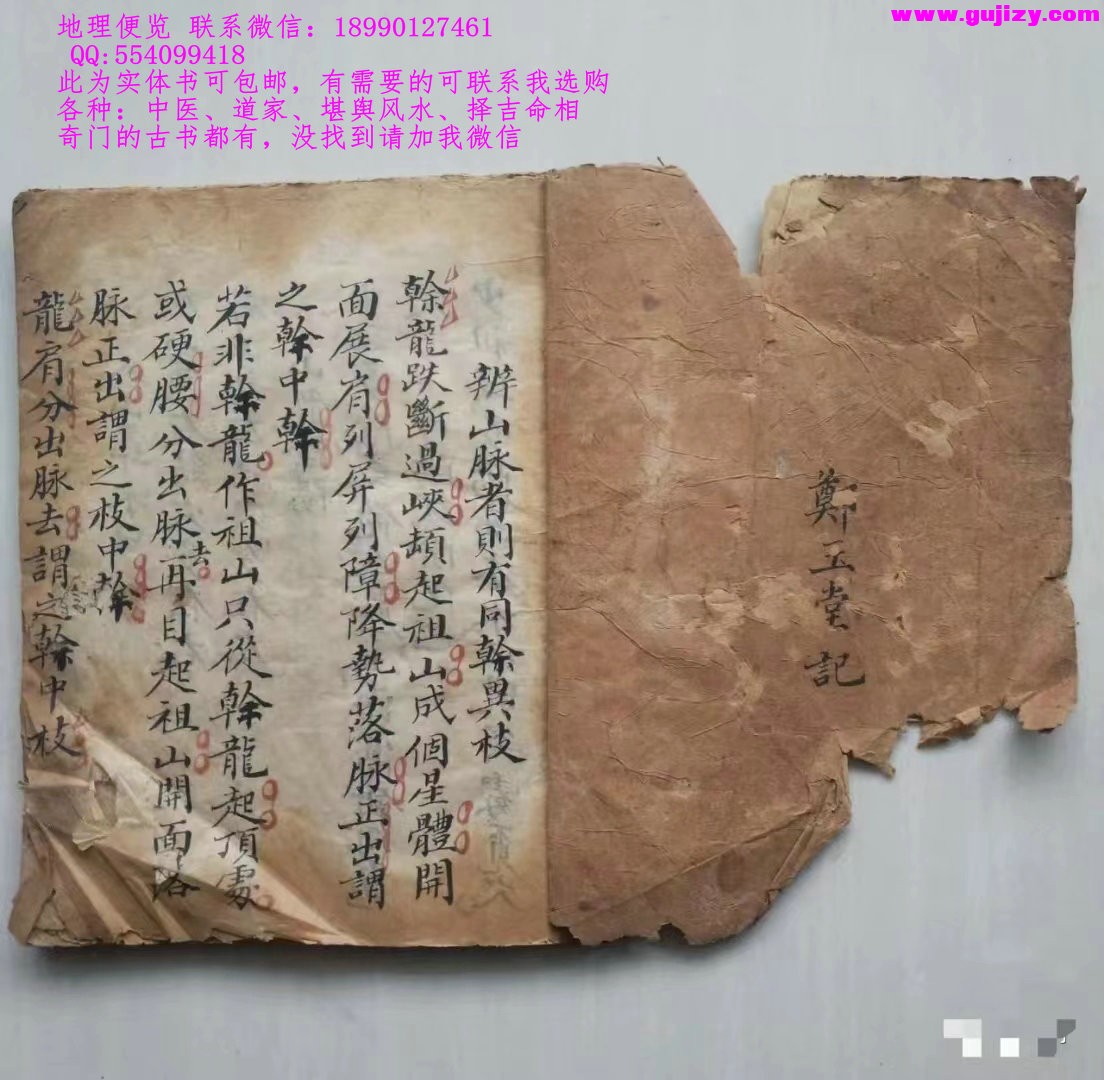 www.gujizy.com
地理便览 联系微信：18990127461
QQ:554099418
此为实体书可包邮，有需要的可联系我选购
各种：中医、道家、堪舆风水、择吉命相
奇门的古书都有，没找到请加我微信
鄭玉堂記
辨山脉者則有同榦異枝
榦龍跌斷過峽頓起祖山成個星體開
面展肩列屏列障降勢落脉正出謂
之榦中榦
若非榦龍作祖山只從榦龍起頂處
或硬腰分出脉去再目起祖山開面落
脉正出謂之枝中榦
龍肩分出脉去謂之榦中枝